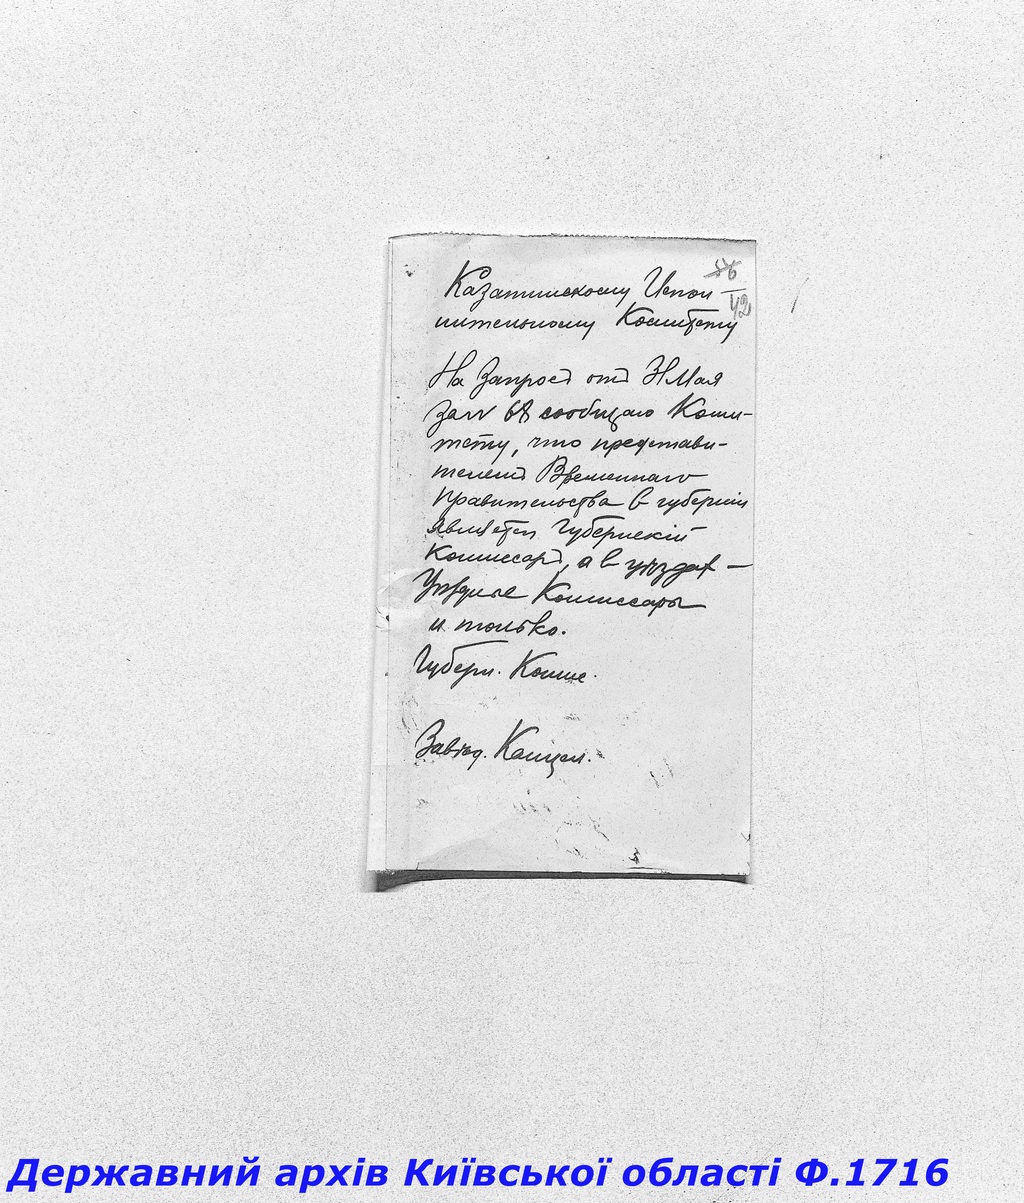 56
42
Казатинскому Испол-
нительному Комитету
На Запросъ отъ Мая
за № 68 сообщаю Коми-
тету, что представи-
телемъ Временнаго
Правительства в губерніи
является Губернскій
Комиссаръ, а в уѣздах —
Уѣздные Комиссары
и только.
Губерн. Комис.
Завѣд. Канцел.
Державний архів Київської області Ф.1716